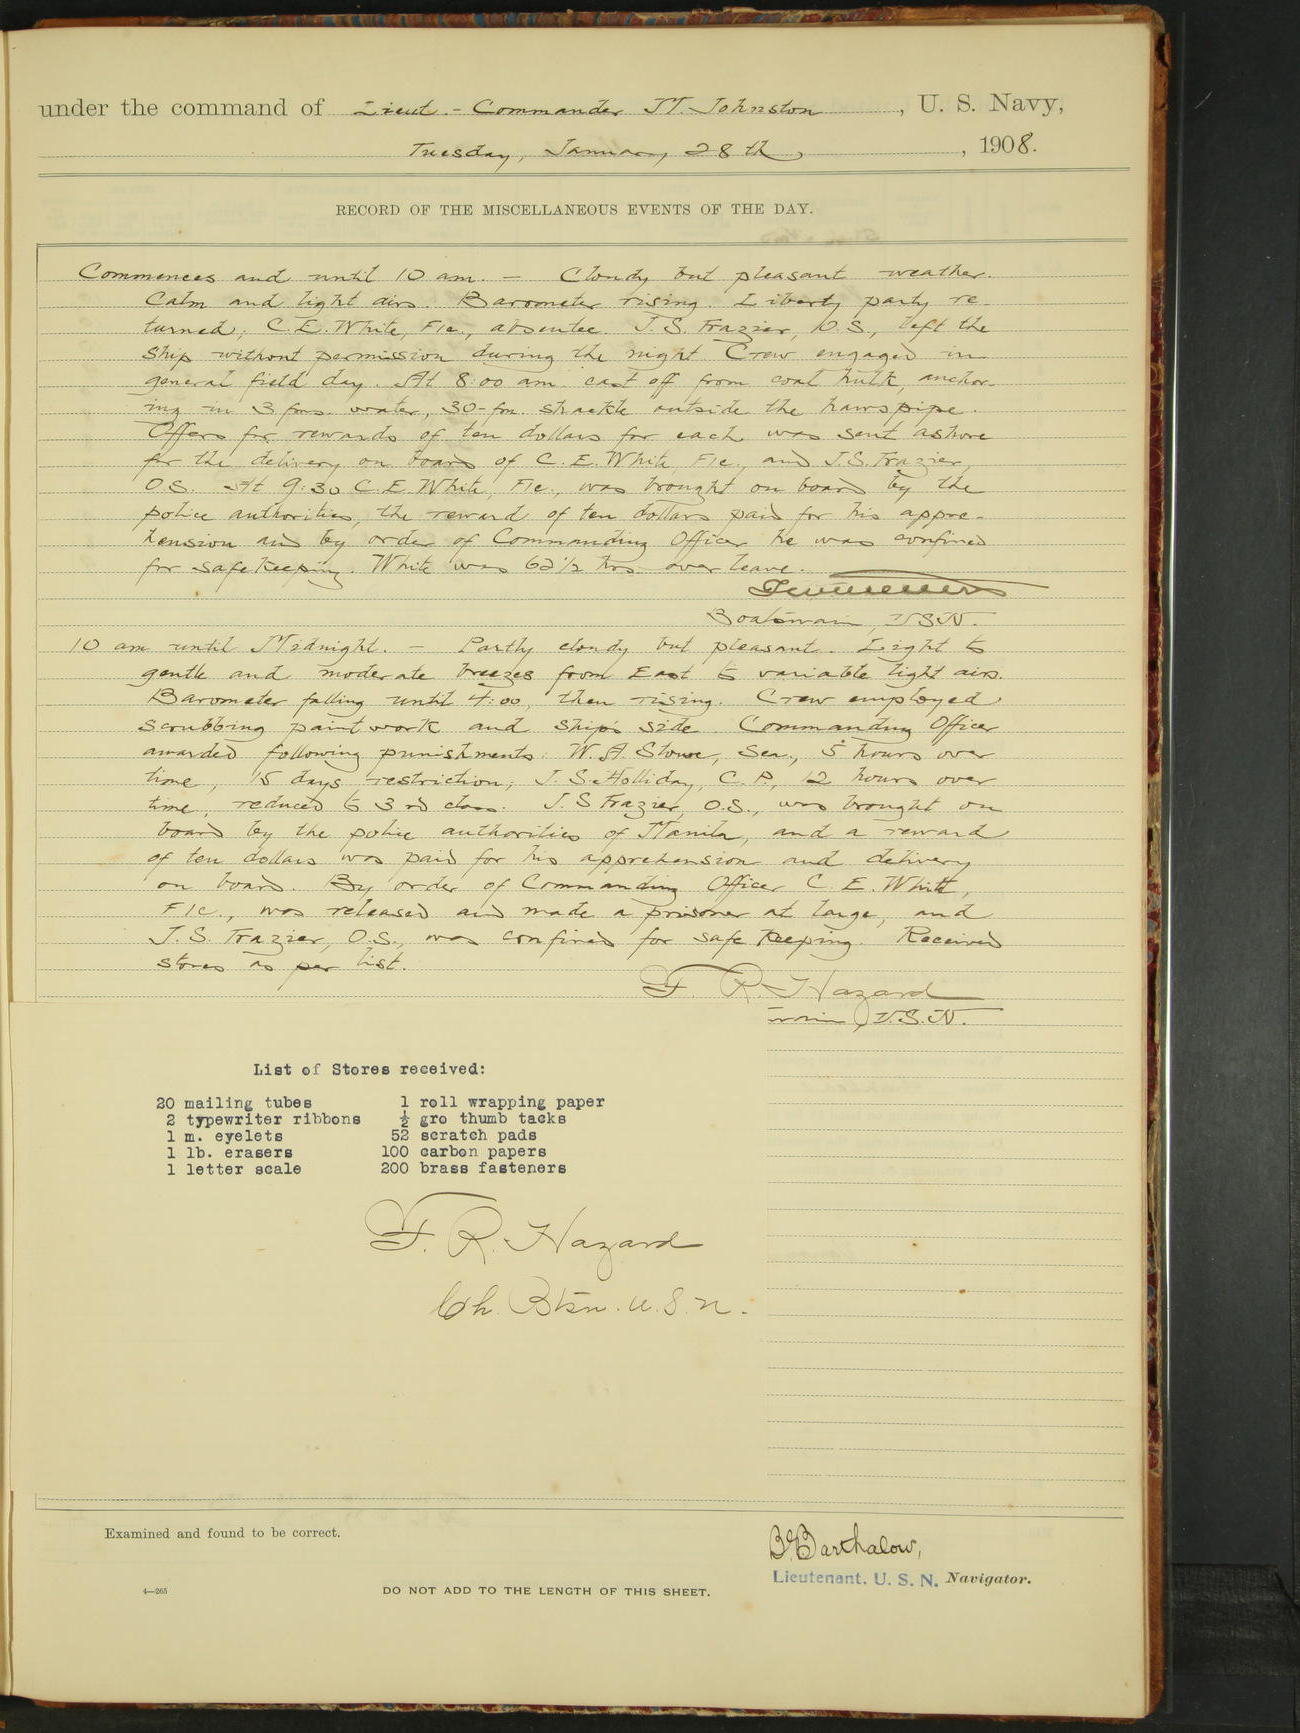 under the command of Lieut.-Commander M. Johnston, U. S. Navy,
Tuesday, January 28th, 1908.
RECORD OF THE MISCELLANEOUS EVENTS OF THE DAY.
Commences and until 10 am. — Cloudy but pleasant weather.
Calm and light airs. Barometer rising. Liberty party re-
turned; C.E. White, F1c., absentee. J.S. Frazier, O.S., left the
ship without permission during the night. Crew engaged in
general field day. At 8:00 am. cast off from coal hulk, anchor-
ing in 3 fms. water, 30-fm. shackle outside the hawspipe.
Offers for rewards of ten dollars for each was sent ashore
for the delivery on board of C.E. White, F1c., and J.S. Frazier,
O.S. At 9:30 C.E. White, F1c., was brought on board by the
police authorities, the reward of ten dollars paid for his appre-
hension and by order of Commanding Officer he was confined
for safe keeping. White was 62½ hrs. over leave.
Boatswain, U.S.N.
10 am until Midnight. — Partly cloudy but pleasant. Light to
gentle and moderate breezes from East to variable light airs.
Barometer falling until 4:00, then rising. Crew employed
scrubbing paint work and ship's side. Commanding Officer
awarded following punishments: W.A. Stowe, Sea., 5 hours over
time, 15 days restriction; J.S. Holliday, C.P., 12 hours over
time, reduced to 3rd class. J.S Frazier, O.S., was brought on
board by the police authorities of Manila, and a reward
of ten dollars was paid for his apprehension and delivery
on board. By order of Commanding Officer C.E. White,
F1c., was released and made a prisoner at large, and
J.S. Frazier, O.S., was confined for safe keeping. Received
stores as per list.
F. R. Hazard
U.S.N.
List of Stores received:
20 mailing tubes 1 roll wrapping paper
2 typewriter ribbons ½ gro thumb tacks
1 m. eyelets 52 scratch pads
1 lb. erasers 100 carbon papers
1 letter scale 200 brass fasteners
F. R. Hazard
Ch. Btsn. U.S.N.
Examined and found to be correct.
Barthalow,
Lieutenant, U. S. N. Navigator.
4—265 DO NOT ADD TO THE LENGTH OF THIS SHEET.